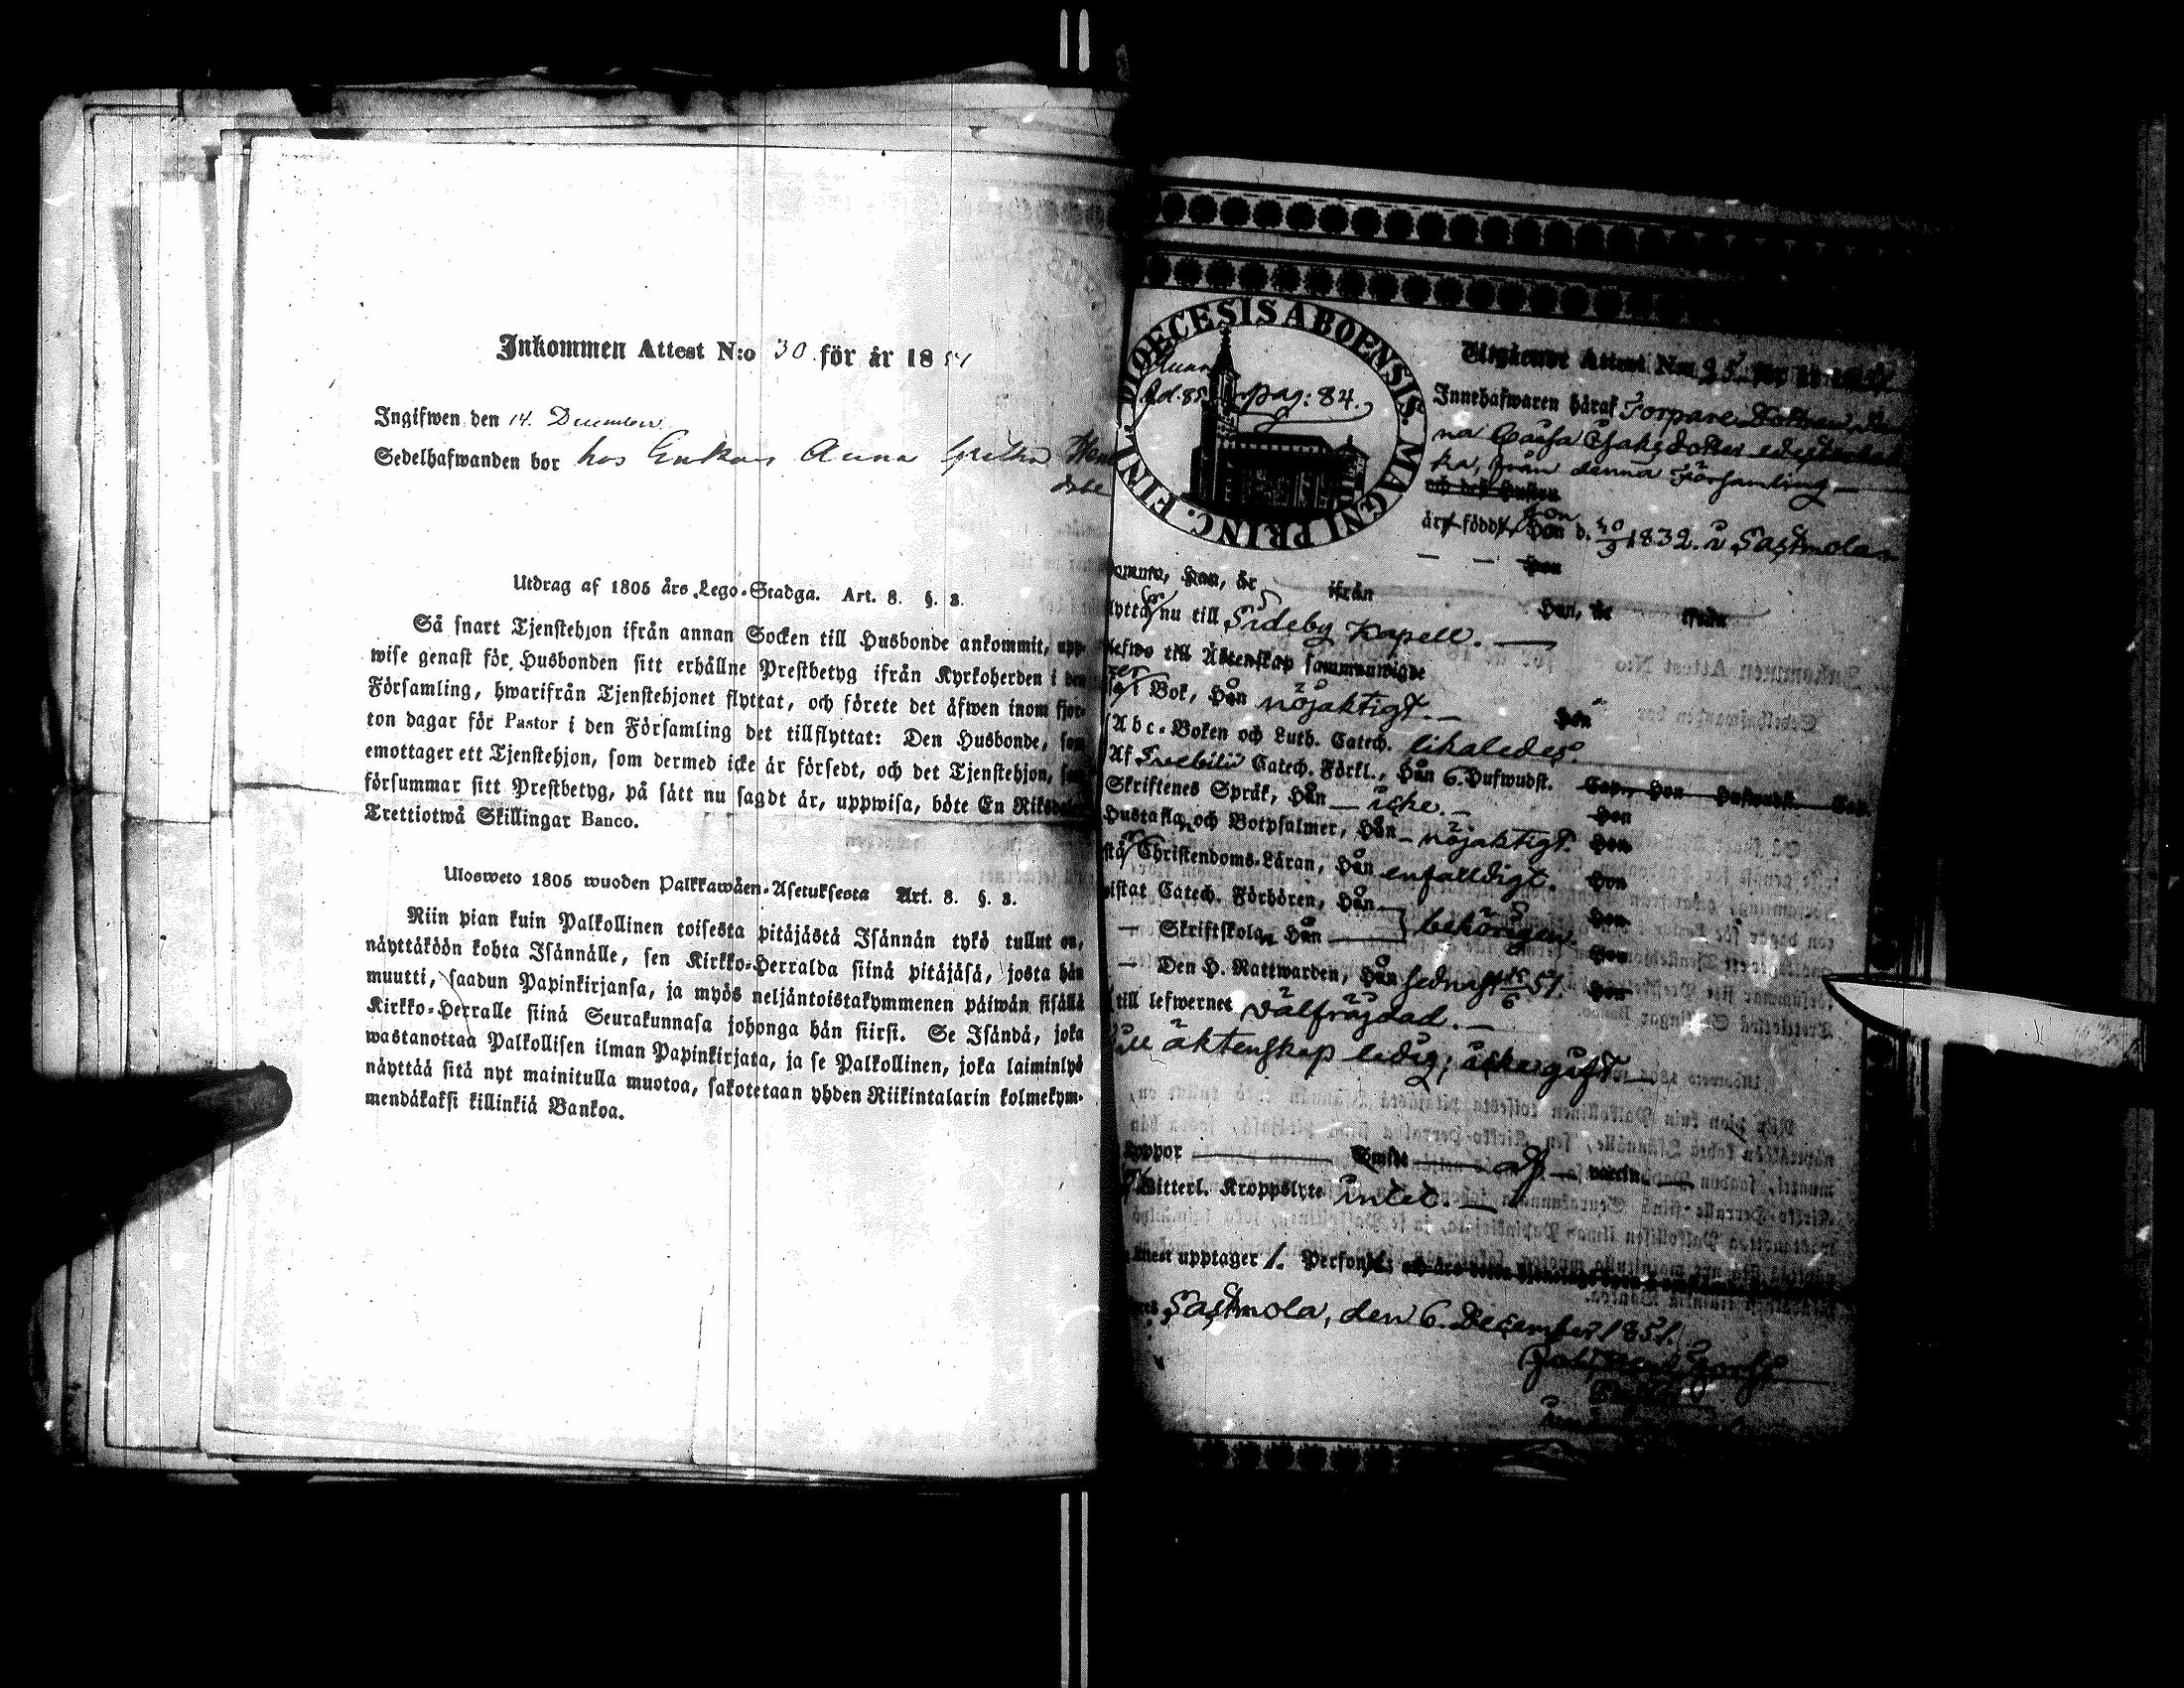 Inkommen Attest N:o 30 för år 1851
Ingifwen den 14. December
Sedelhafwanden bor hos Enkan Anna Gretha
Utdrag af 1805 års Lego-Stadga. Art. 8. §. 3.
Så snart Tjenstehjon ifrån annan Socken till Husbonde ankommit, upp-
wise genast för Husbonden sitt erhållne Prestbetyg ifrån Kyrkoherden i den
Församling, hwarifrån Tjenstehjonet flyttat, och förete det äfwen inom fjor-
ton dagar för Pastor i den Församling det tillflyttat: Den Husbonde, som
emottager ett Tjenstehjon, som dermed icke är försedt, och det Tjenstehjon, som
försummar sitt Prestbetyg, på sätt nu sagdt är, uppwisa, böte En Riksdaler
Trettiotwå Skillingar Banco.
Ulosweto 1805 wuoden Palkkawäen-Asetuksesta Art. 8. §. 3.
Niin pian kuin Palkollinen toisesta pitäjästä Isännän tykö tullut on,
näyttäköön kohta Isännälle, sen Kirkko-Herralda siinä pitäjäsä, josta hän
muutti, saadun Papinkirjansa, ja myös neljäntoistakymmenen päiwän sisällä
Kirkko-Herralle siinä Seurakunnasa johonga hän siirsi. Se Isändä, joka
wastanottaa Palkollisen ilman Papinkirjata, ja se Palkollinen, joka laiminlyö
näyttää sitä nyt mainitulla muotoa, sakotetaan yhden Riikintalarin kolmekym-
mendäkaksi killinkiä Bankoa.
DIOECESIS ABOENSIS. MAGNI PRINC. FINL.
pag: 84.
Utgånget Attest N:o
Innehafwaren häraf Torpare Dottren
Caisa Isaksdotter
från denna Församling
och deß Hustru
är född Hon d. 10/3 1832. i Sastmola
Hon
Hon, år ifrån Hon, år ifrån
nu till Sideby Kapell.
till Äktenskap sammanwigde
i Bok, Hon nöjaktigt. Hon
Abc-Boken och Luth. Catech. likaledes.
Af Svebilii Catech. Förkl., Hon 6. Hufwudst. Cap., Hon Hufwudst. Cap.
Skriftenes Språk, Hon icke. Hon
Hustafla och Botpsalmer, Hon nöjaktigt. Hon
Christendoms-Läran, Hon enfalldigt. Hon
Catech. Förhören, Hon behörigen. Hon
Skriftskola, Hon Hon
Den H. Nattwarden, Hon sednast 15/6 51. Hon
till lefwernet välfräjdad.
äktenskap ledig; icke gift
Koppor
Witterl. Kroppslyte intet.
Attest upptager 1. Person
Sastmola, den 6. December 1851.